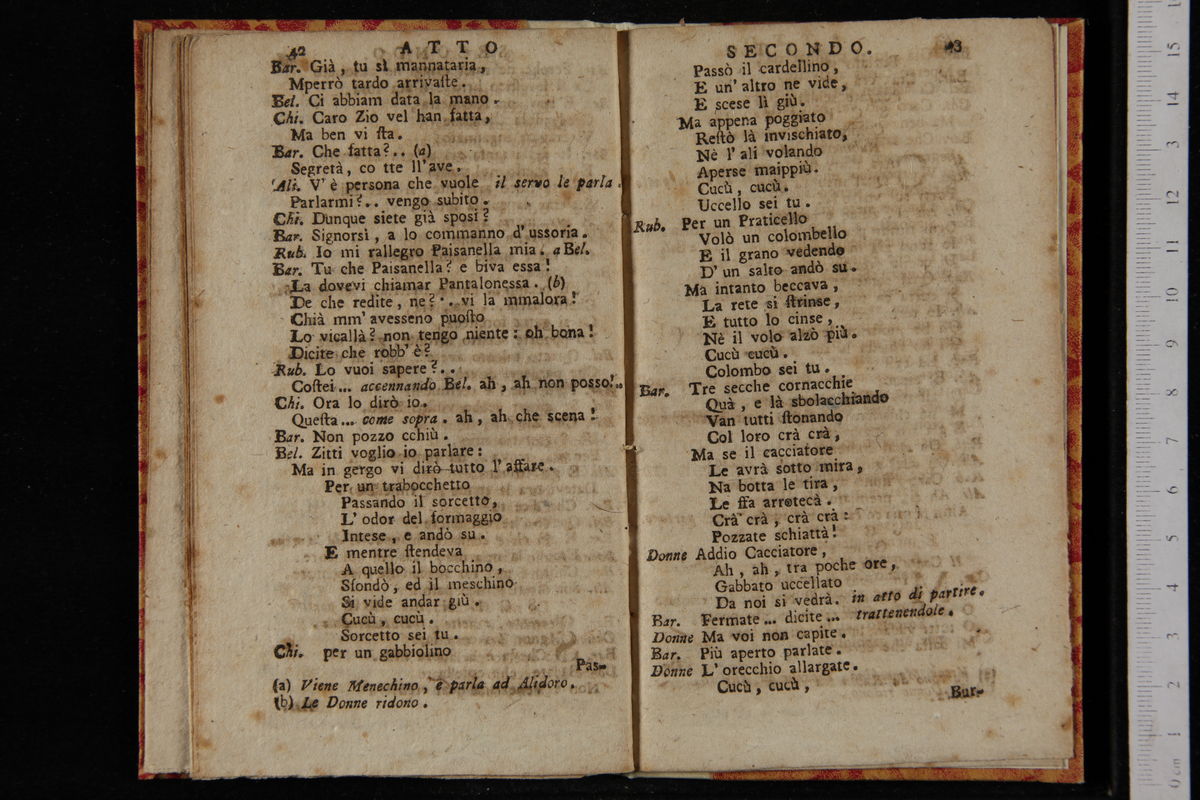 42 ATTO
Bar. Già, tu sì mannataria,
Mperrò tardo arrivaſte.
Bel. Ci abbiam data la mano.
Chi. Caro Zio vel han fatta,
Ma ben vi ſta.
Bar. Che fatta?.. (a)
Segretà, co tte ll'ave.
Ali. V'è persona che vuole il servo le parla.
Parlarmi?.. vengo subito.
Chi. Dunque siete già sposi?
Bar. Signorsì, a lo commanno d'ussoria.
Rub. Io mi rallegro Paisanella mia. a Bel.
Bar. Tu che Paisanella? e biva essa!
La dovevi chiamar Pantalonessa. (b)
De che redite, ne?.. vi la mmalora!
Chià mm'avesseno puoſto
Lo vicallà? non tengo niente: oh bona!
Dicite che robb'è?
Rub. Lo vuoi sapere?..
Coſtei... accennando Bel. ah, ah non posso!..
Chi. Ora lo dirò io.
Queſta... come sopra. ah, ah che scena!
Bar. Non pozzo cchiù.
Bel. Zitti voglio io parlare:
Ma in gergo vi dirò tutto l'affare.
Per un trabocchetto
Passando il sorcetto,
L'odor del formaggio
Intese, e andò su.
E mentre ſtendeva
A quello il bocchino,
Sfondò, ed il meschino
Si vide andar giù.
Cucù, cucù.
Sorcetto sei tu.
Chi. per un gabbiolino
Pas-
(a) Viene Menechino, e parla ad Alidoro.
(b) Le Donne ridono.
SECONDO. 43
Passò il cardellino,
E un'altro ne vide,
E scese lì giù.
Ma appena poggiato
Reſtò là invischiato,
Nè l'ali volando
Aperse maippiù.
Cucù, cucù.
Uccello sei tu.
Rub. Per un Praticello
Volò un colombello
E il grano vedendo
D'un salto andò su.
Ma intanto beccava,
La rete si ſtrinse,
E tutto lo cinse,
Nè il volo alzò più.
Cucù cucù.
Colombo sei tu.
Bar. Tre secche cornacchie
Quà, e là sbolacchiando
Van tutti ſtonando
Col loro crà crà,
Ma se il cacciatore
Le avrà sotto mira,
Na botta le tira,
Le ffa arrotecà.
Crà crà, crà crà:
Pozzate schiattà!
Donne Addio Cacciatore,
Ah, ah, tra poche ore,
Gabbato uccellato
Da noi si vedrà. in atto di partire.
Bar. Fermate... dicite... trattenendole.
Donne Ma voi non capite.
Bar. Più aperto parlate.
Donne L'orecchio allargate.
Cucù, cucù,
Bar-